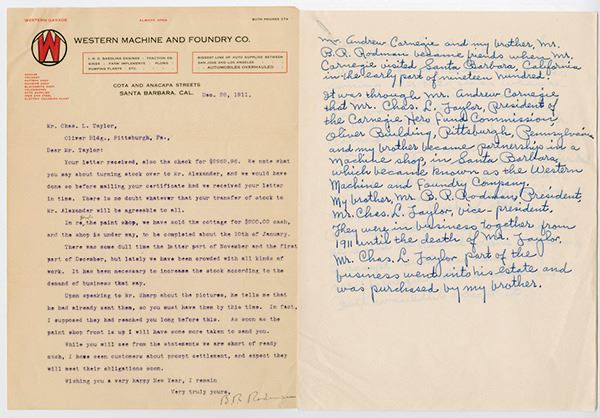 WESTERN GARAGE
ALWAYS OPEN
BOTH PHONES 274
W
WESTERN MACHINE AND FOUNDRY CO.
I. H. C. GASOLINE ENGINES : TRACTION EN-
GINES : FARM IMPLEMENTS : PLOWS :
PUMPING PLANTS ETC.
BIGGEST LINE OF AUTO SUPPLIES BETWEEN
SAN JOSE AND LOS ANGELES
AUTOMOBILES OVERHAULED
COTA AND ANACAPA STREETS
SANTA BARBARA, CAL.
Dec. 28, 1911.
Mr. Chas. L. Taylor,
Oliver Bldg., Pittsburgh, Pa.,
Dear Mr. Taylor:
Your letter received, also the check for $2962.96. We note that
you say about turning stock over to Mr. Alexander, and we would have
done so before mailing your certificate had we received your letter
in time. There is no doubt whatever that your transfer of stock to
Mr. Alexander will be agreeable to all.
In re the paint shop, we have sold the cottage for $200.00 cash,
and the shop is under way, to be completed about the 10th of January.
There was some dull time the latter part of November and the first
part of December, but lately we have been crowded with all kinds of
work. It has been necessary to increase the stock according to the
demand of business that way.
Upon speaking to Mr. Sharp about the pictures, he tells me that
he had already sent them, so you must have them by this time. In fact,
I supposed they had reached you long before this. As soon as the
paint shop front is up I will have some more taken to send you.
While you will see from the statements we are short of ready
cash, I have seen customers about prompt settlement, and expect they
will meet their obligations soon.
Wishing you a very happy New Year, I remain
Very truly yours,
B.R. Rodman
Mr. Andrew Carnegie and my brother, Mr.
B.R. Rodman became freinds when Mr.
Carnegie visited Santa Barbara, California
in the early part of nineteen hundred.
It was through Mr. Andrew Carnegie
that Mr. Chas. L. Taylor, President of
the Carnegie Hero Fund Commission,
Oliver Building, Pittsburgh, Pennsylvania
and my brother became partnership in a
Machine shop, in Santa Barbara,
which became known as the Western
Machine and Foundry Company.
My brother, Mr. B.R. Rodman, President,
Mr. Chas. L. Taylor, vice-president.
They were in business together from
1911 until the death of Mr. Taylor.
Mr. Chas. L Taylor part of the
business went into his estate and
was purchased by my brother.